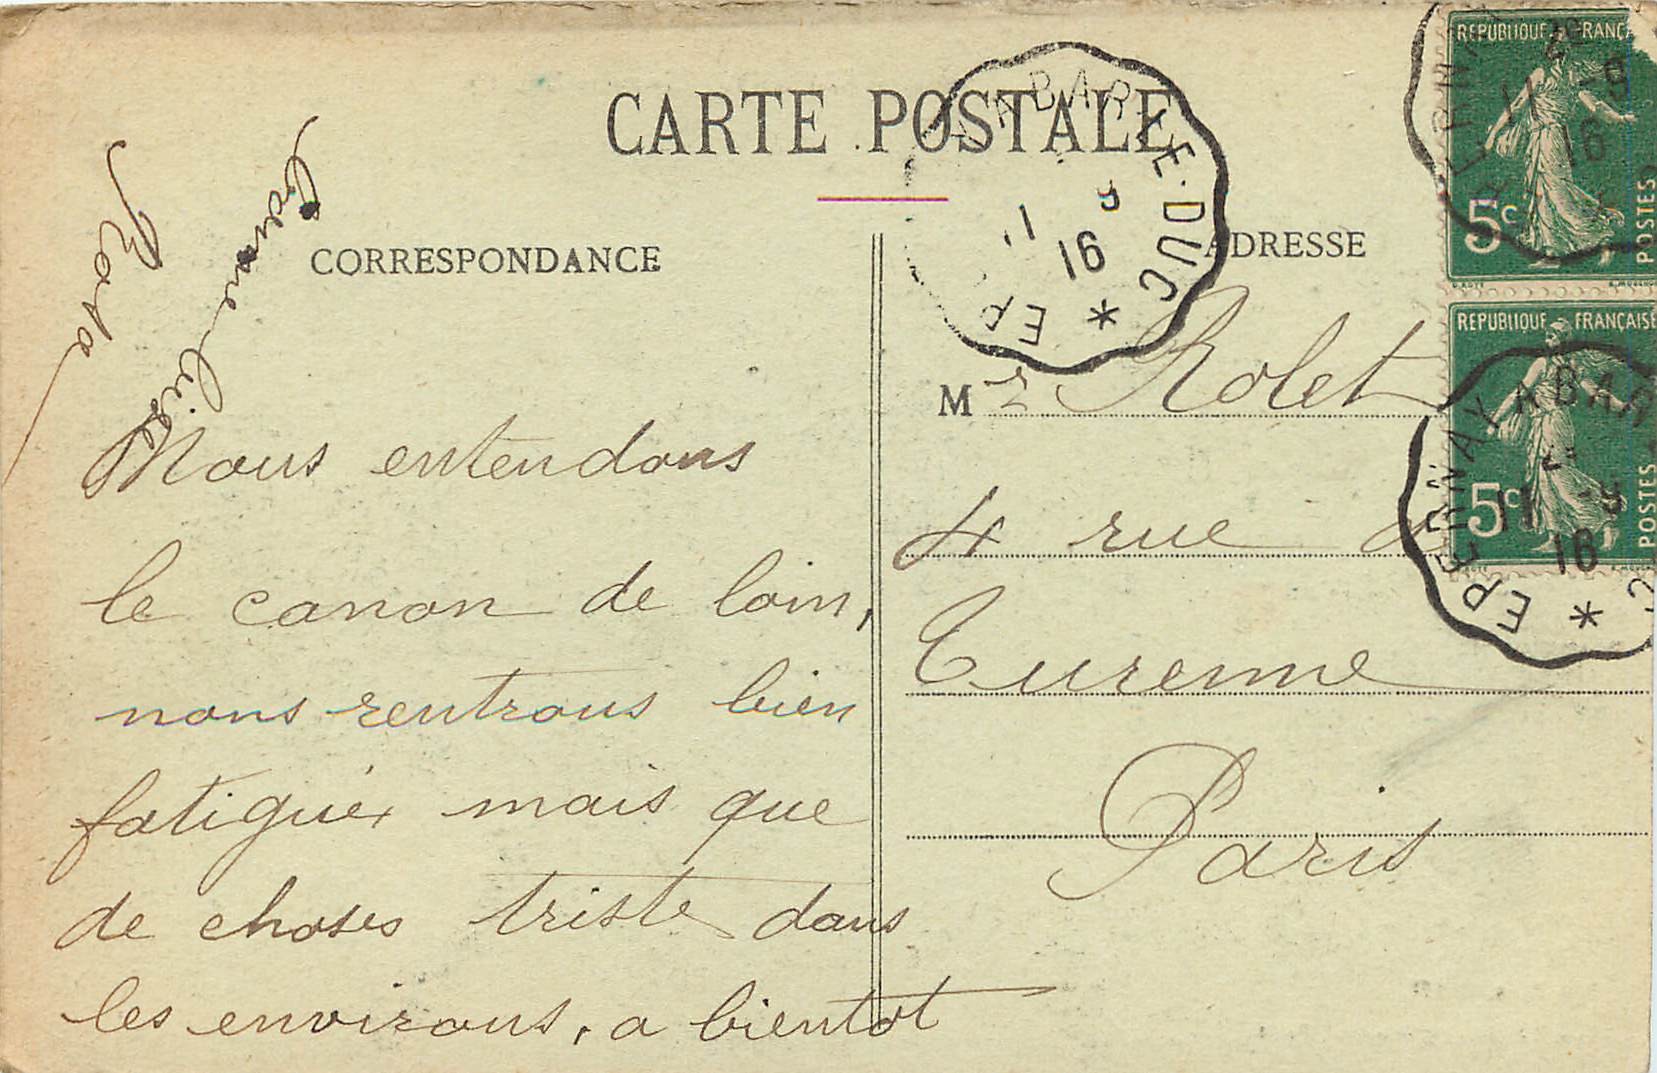 CARTE POSTALE
CORRESPONDANCE
ADRESSE
Nous entendons
le canon de loin,
nous rentrons bien
fatigués mais que
de choses triste dans
les environs, a bientot
Mr Rolet
4 rue d
Turenne
Paris
EPERNAY A BAR-LE-DUC *
11 -9
16
REPUBLIQUE FRANÇAISE
5c
POSTES
REPUBLIQUE FRANÇAISE
5c
POSTES
EPERNAY A BAR
11 -9
16